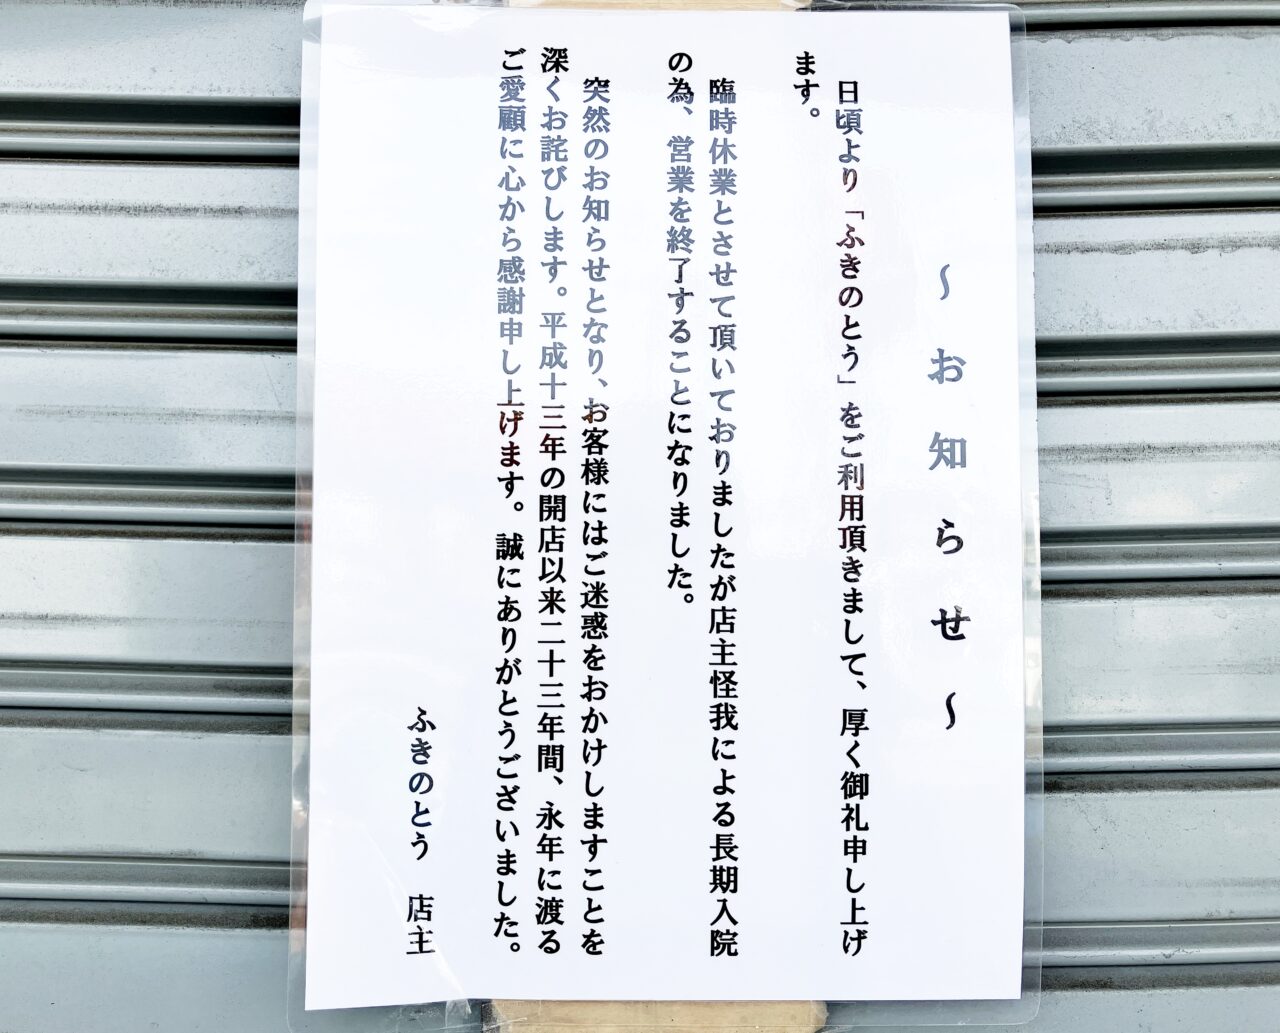 ～お知らせ～
日頃より「ふきのとう」をご利用頂きまして、厚く御礼申し上げ
ます。
臨時休業とさせて頂いておりましたが店主怪我による長期入院
の為、営業を終了することになりました。
突然のお知らせとなり、お客様にはご迷惑をおかけしますことを
深くお詫びします。平成十三年の開店以来二十三年間、永年に渡る
ご愛顧に心から感謝申し上げます。誠にありがとうございました。
ふきのとう　店主